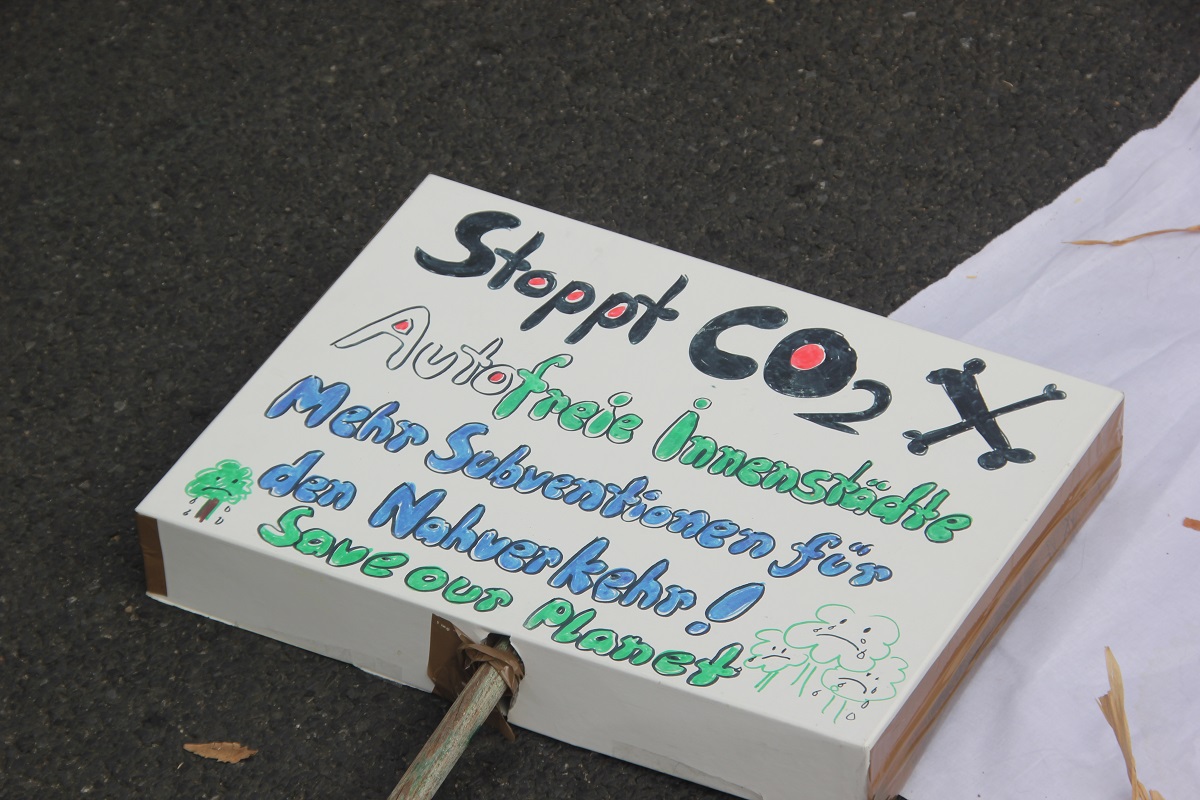 Stoppt CO2
Autofreie Innenstädte
Mehr Subventionen für
den Nahverkehr!
Save our Planet